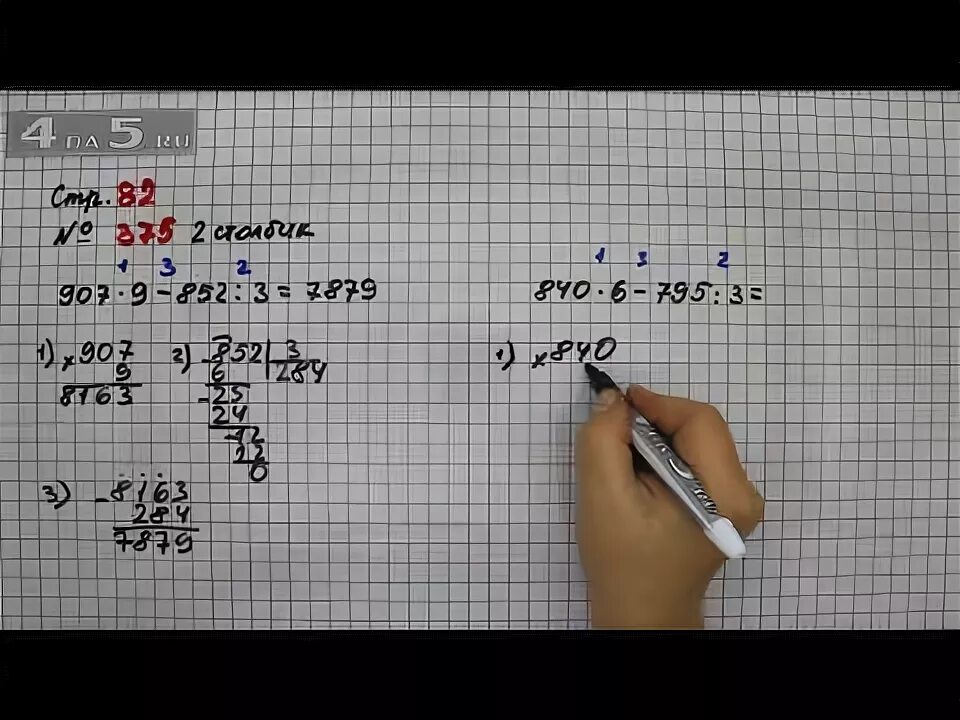 4 на 5.RU
Стр. 82
№ 375 2 столбик
1 3 2
907 · 9 - 852 : 3 = 7879
1) × 907
9
8163
2) - 852 | 3
6 284
- 25
24
- 12
12
0
3) - 8163
284
7879
1 3 2
840 · 6 - 795 : 3 =
1) × 840